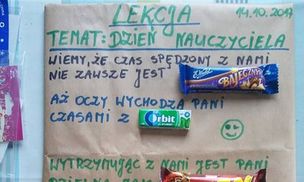 LEKCJA 14.10.2017
TEMAT: DZIEŃ NAUCZYCIELA
WIEMY, ŻE CZAS SPĘDZONY Z NAMI
NIE ZAWSZE JEST! BAJECZNY
AŻ OCZY WYCHODZĄ PANI
CZASAMI Z Orbit
WYTRZYMUJĄC Z NAMI JEST PANI